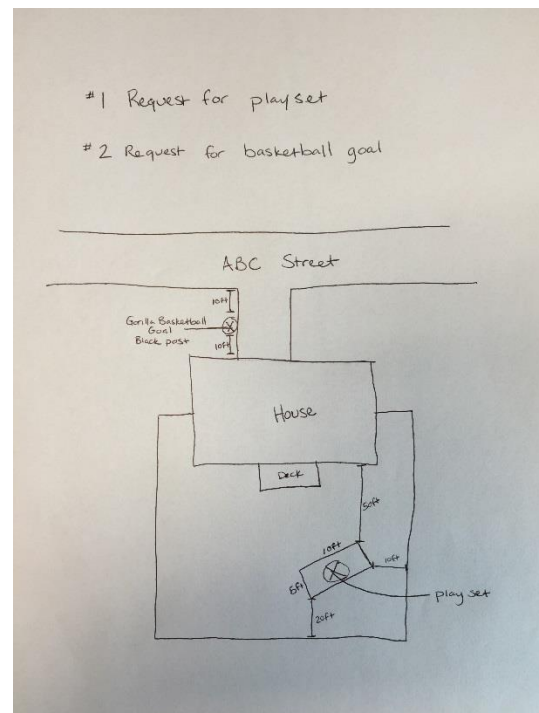 #1 Request for playset
#2 Request for basketball goal
ABC Street
10ft
Gorilla Basketball
Goal
Black post
10ft
House
Deck
50ft
10ft
10ft
5ft
play set
20ft